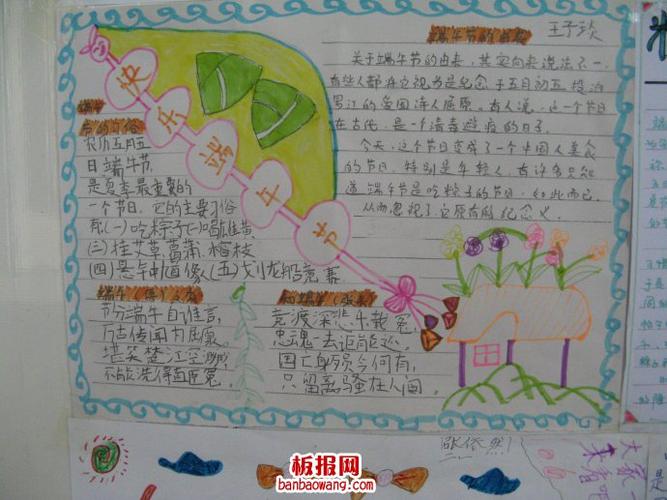 端午节的由来
王子琰
关于端午节的由来，其实向来说法不一，
有些人都将它视为是纪念于五月初五投汨
罗江的爱国诗人屈原。有人说，这一个节日
在古代，是一个消毒避疫的日子。
今天，这个节日变成了一个中国人美食
的节日，特别是年轻人，有许多只知
道端午节是吃粽子的节日，如此而已，
从而忽视了它原有的纪念义。
快乐端午节
端午
节的习俗
农历五月五
日端午节，
是夏季最重要的
一个节日，它的主要习俗
有（一）吃粽子（二）喝雄黄
（三）挂艾草、菖蒲、榕枝
（四）悬钟馗像（五）划龙船竞赛
端午
节分端午自谁言，
万古传闻为屈原。
堪笑楚江空渺渺，
不能洗得直臣冤。
竞渡深悲千载冤，
忠魂一去讵能还。
国亡身殒今何有，
只留离骚在人间。
张倚然
板报网
banbaowang.com